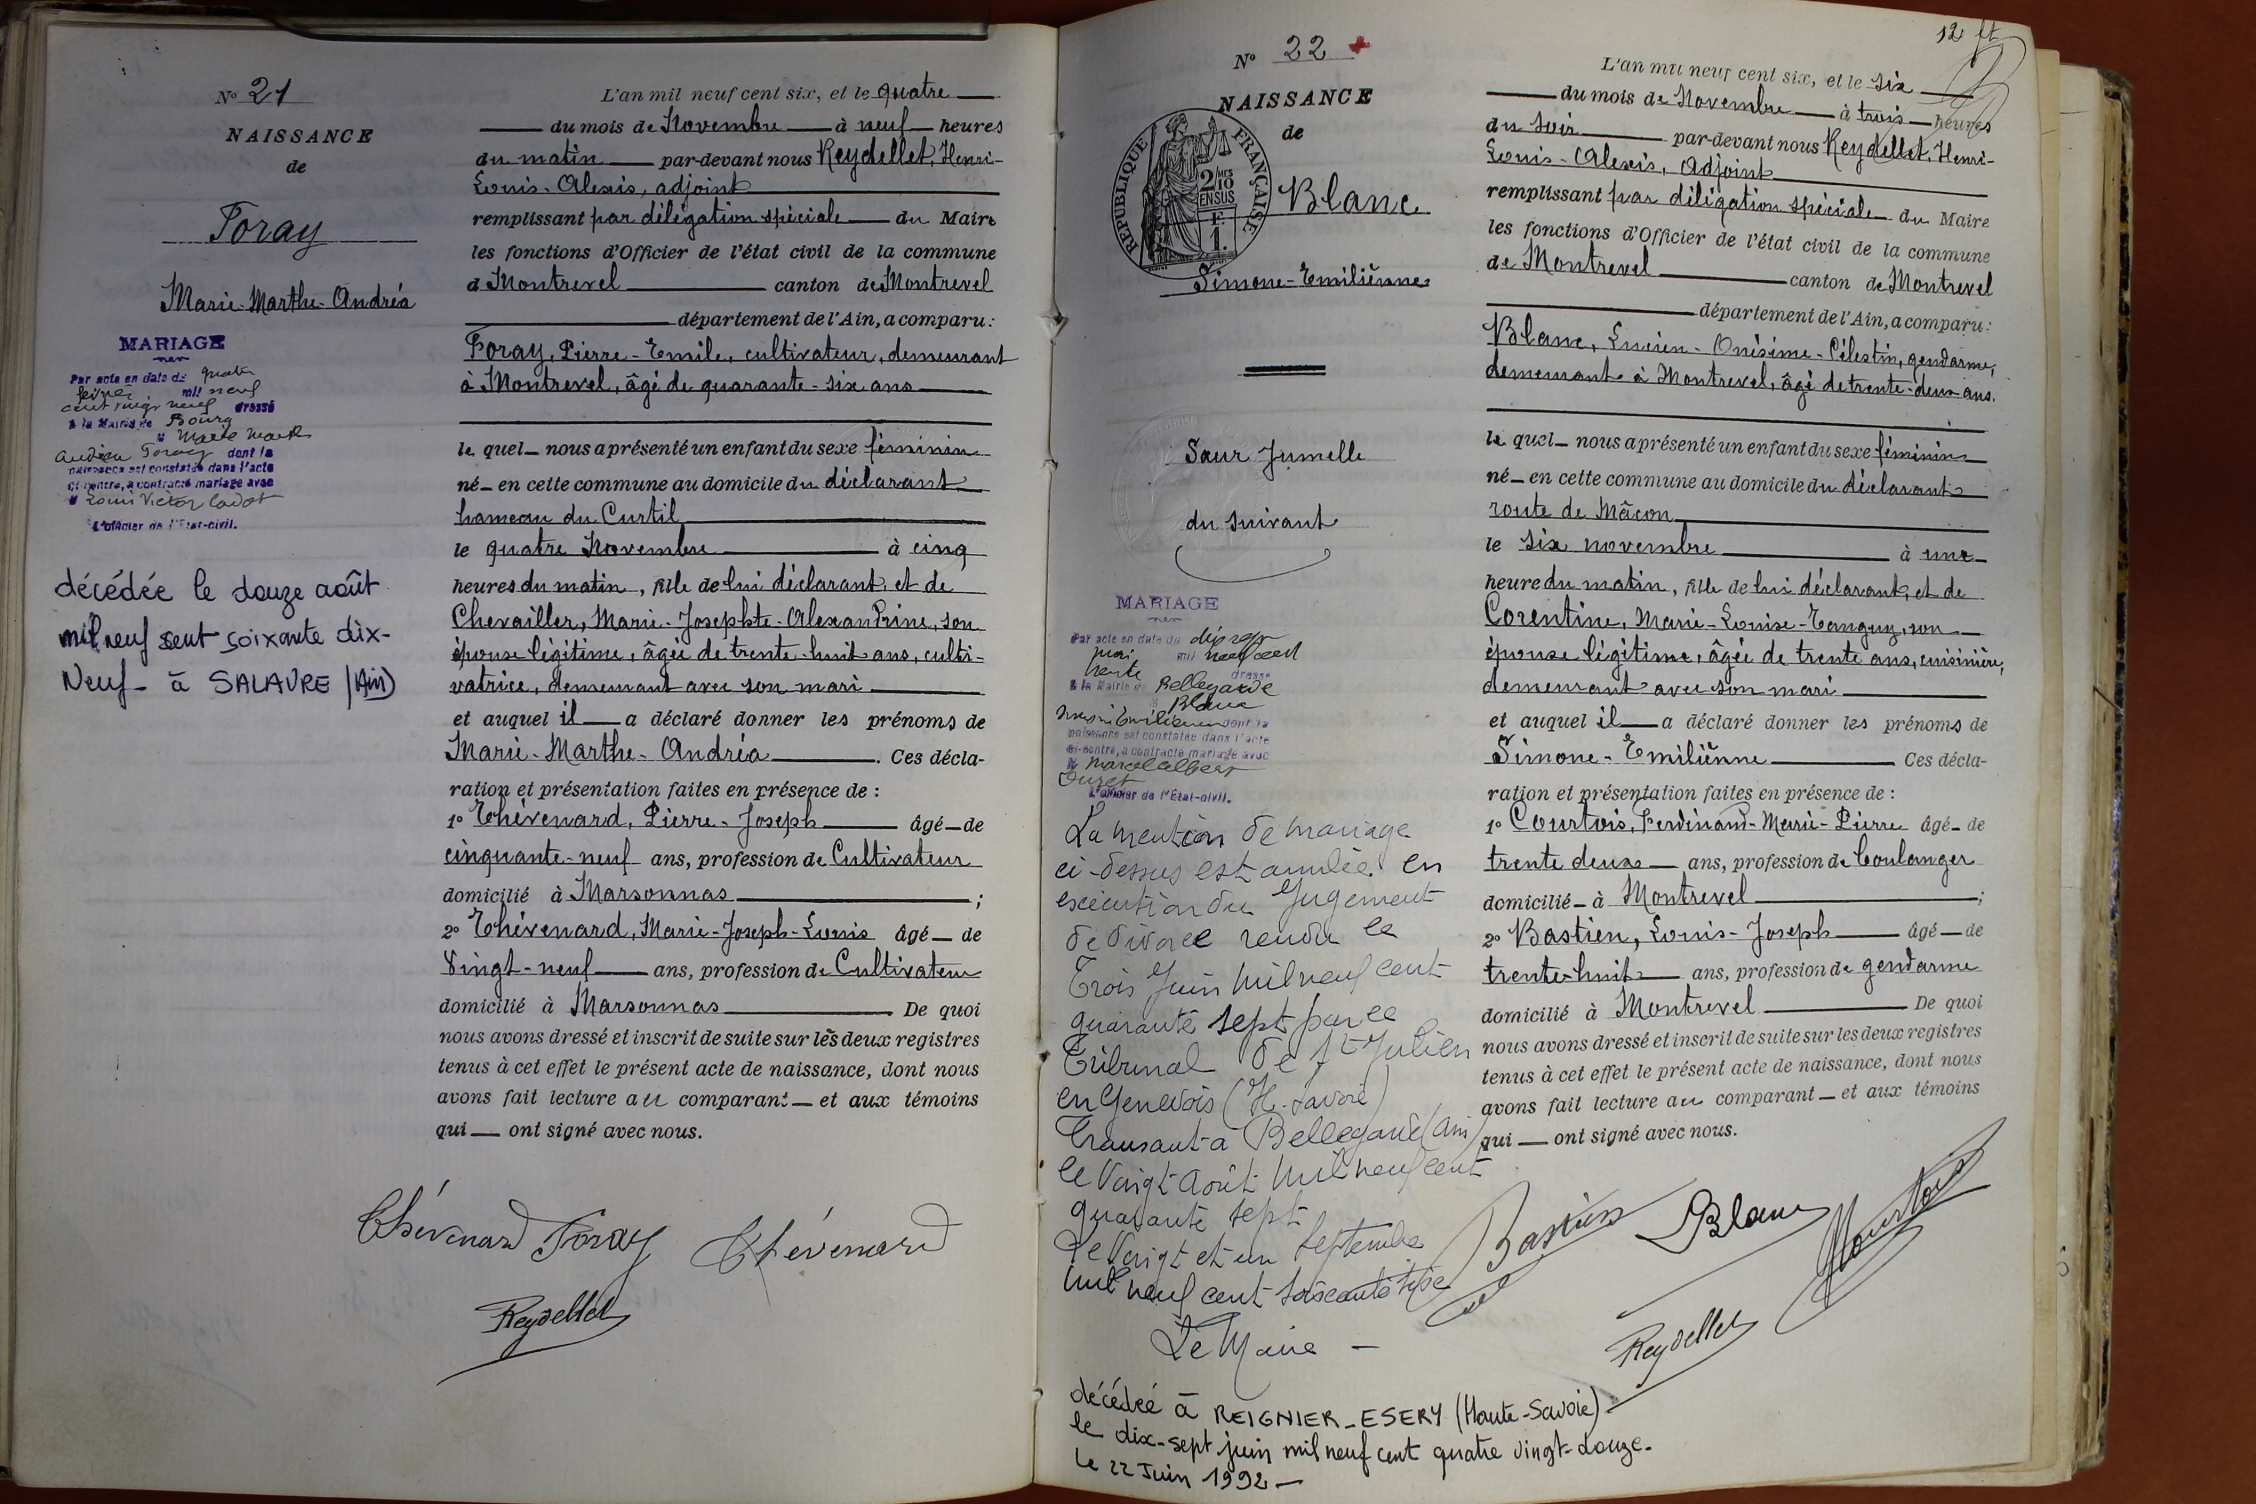 N° 21
NAISSANCE
de
Foray
Marie-Marthe-Andréa
MARIAGE
Par acte en date du quatre
février mil neuf
cent vingt neuf dressé
à la Mairie de Bourg
M Marie Marthe
Andréa Foray dont la
naissance est constatée dans l'acte
ci-contre, a contracté mariage avec
M Louis Victor Cadot
L'officier de l'État-civil.
décédée le douze août
mil neuf cent soixante dix-
Neuf - à SALAVRE (Ain)
L'an mil neuf cent six, et le quatre
du mois de Novembre à neuf heures
du matin par-devant nous Reydellet, Henri-
Louis-Alexis, adjoint
remplissant par délégation spéciale du Maire
les fonctions d'Officier de l'état civil de la commune
d Montrevel canton de Montrevel
département de l'Ain, a comparu :
Foray, Pierre-Emile, cultivateur, demeurant
à Montrevel, âgé de quarante-six ans
le quel nous a présenté un enfant du sexe féminin
né en cette commune au domicile du déclarant
hameau du Curtil
le quatre Novembre à cinq
heures du matin, fille de lui déclarant, et de
Chevailler, Marie-Josephte-Alexandrine, son
épouse légitime, âgée de trente-huit ans, culti-
vatrice, demeurant avec son mari
et auquel il a déclaré donner les prénoms de
Marie-Marthe-Andréa. Ces décla-
ration et présentation faites en présence de :
1° Thévenard, Pierre-Joseph âgé de
cinquante-neuf ans, profession de Cultivateur
domicilié à Marsonnas ;
2° Thévenard, Marie-Joseph-Louis âgé de
Vingt-neuf ans, profession de Cultivateur
domicilié à Marsonnas. De quoi
nous avons dressé et inscrit de suite sur les deux registres
tenus à cet effet le présent acte de naissance, dont nous
avons fait lecture au comparant et aux témoins
qui ont signé avec nous.
Thévenard Foray Thévenard
Reydellet
12 
N° 22
NAISSANCE
de
REPUBLIQUE FRANÇAISE
2/10 MES
EN SUS
F.
1.
Blanc
Simone-Emilienne
Sœur Jumelle
du suivant
MARIAGE
Par acte en date du dix sept
mai mil neuf cent
trente dressé
à la Mairie de Bellegarde
M Blanc
Simone Emilienne dont la
naissance est constatée dans l'acte
ci-contre, a contracté mariage avec
M Marcel Albert
L'officier de l'État-civil.
La mention de mariage
ci-dessus est annulée en
exécution du Jugement
de divorce rendu le
Trois Juin Mil neuf cent
quarante sept par le
Tribunal de St Julien
en Genevois (H. Savoie)
Transcrit à Bellegarde (Ain)
le Vingt Août Mil neuf cent
quarante sept
Le Vingt et un Septembre
Mil neuf cent soixante
Le Maire -
décédée à REIGNIER-ESERY (Haute-Savoie)
le dix-sept juin mil neuf cent quatre vingt-douze.
Le 22 Juin 1992 -
L'an mil neuf cent six, et le six
du mois de Novembre à trois heures
du soir par-devant nous Reydellet, Henri-
Louis-Alexis, Adjoint
remplissant par délégation spéciale du Maire
les fonctions d'Officier de l'état civil de la commune
de Montrevel canton de Montrevel
département de l'Ain, a comparu :
Blanc, Lucien-Onésime-Célestin, gendarme,
demeurant à Montrevel, âgé de trente-deux ans.
le quel nous a présenté un enfant du sexe féminin
né en cette commune au domicile du déclarant
route de Mâcon
le six novembre à une
heure du matin, fille de lui déclarant, et de
Corentine, Marie-Louise-Tanguy, son
épouse légitime, âgée de trente ans, cuisinière,
demeurant avec son mari
et auquel il a déclaré donner les prénoms de
Simone-Emilienne Ces décla-
ration et présentation faites en présence de :
1° Courtois, Ferdinand-Marie-Pierre âgé de
trente deux ans, profession de boulanger
domicilié à Montrevel ;
2° Bastien, Louis-Joseph âgé de
trente-huit ans, profession de gendarme
domicilié à Montrevel De quoi
nous avons dressé et inscrit de suite sur les deux registres
tenus à cet effet le présent acte de naissance, dont nous
avons fait lecture au comparant et aux témoins
qui ont signé avec nous.
Bastien Blanc Courtois
Reydellet